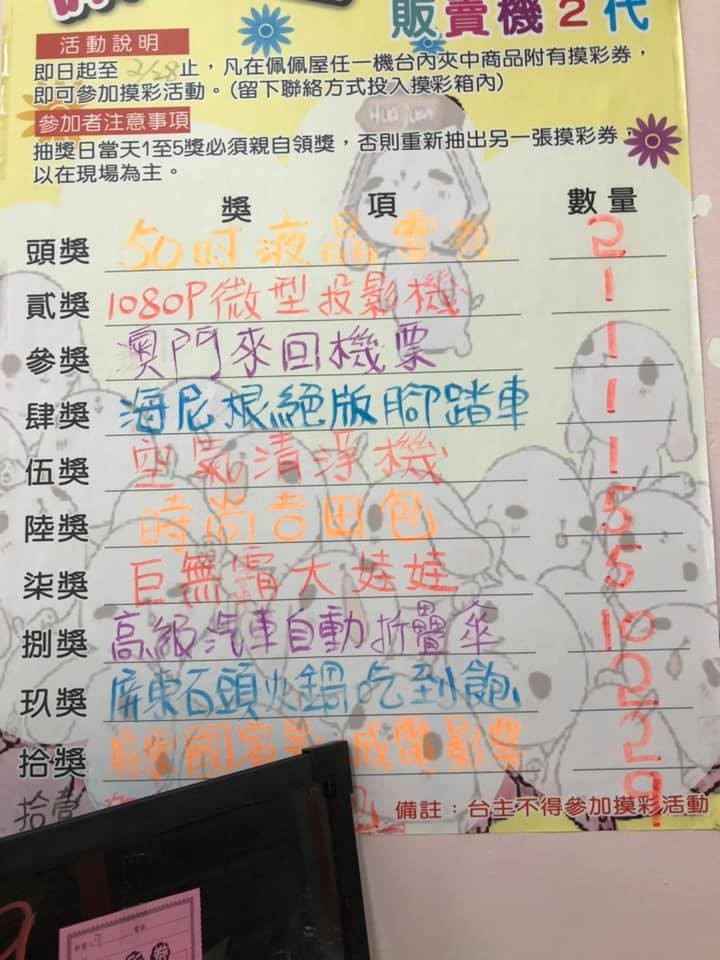 販賣機2代
活動說明
即日起至 2/28止，凡在佩佩屋任一機台內夾中商品附有摸彩券，
即可參加摸彩活動。(留下聯絡方式投入摸彩箱內)
參加者注意事項
抽獎日當天1至5獎必須親自領獎，否則重新抽出另一張摸彩券，
以在現場為主。
獎 項 數量
頭獎 50吋液晶電視 2
貳獎 1080P微型投影機 1
參獎 澳門來回機票 1
肆獎 海尼根絕版腳踏車 1
伍獎 空氣清淨機 1
陸獎 時尚吉田包 5
柒獎 巨無霸大娃娃 5
捌獎 高級汽車自動折疊傘 10
玖獎 屏東石頭火鍋吃到飽 2
拾獎 屏東國賓 威秀電影票 3
拾壹 9
備註：台主不得參加摸彩活動